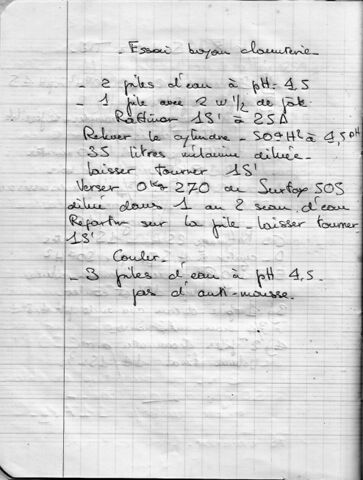 - Essai tuyau clouterie -
- 2 piles d'eau à pH 4,5
- 1 pile avec 2 w 1/2 de pâte
Raffiner 15' à 25A
Relever le cylindre - SO4H2 à 4,5 pH
35 litres mélamine diluée -
laisser tourner 15'
Verser 0kg 270 de Surfax 505
dilué dans 1 ou 2 seau d'eau
Répartir sur la pile - laisser tourner
15'
Couler -
- 3 piles d'eau à pH 4,5
pas d'anti-mousse.